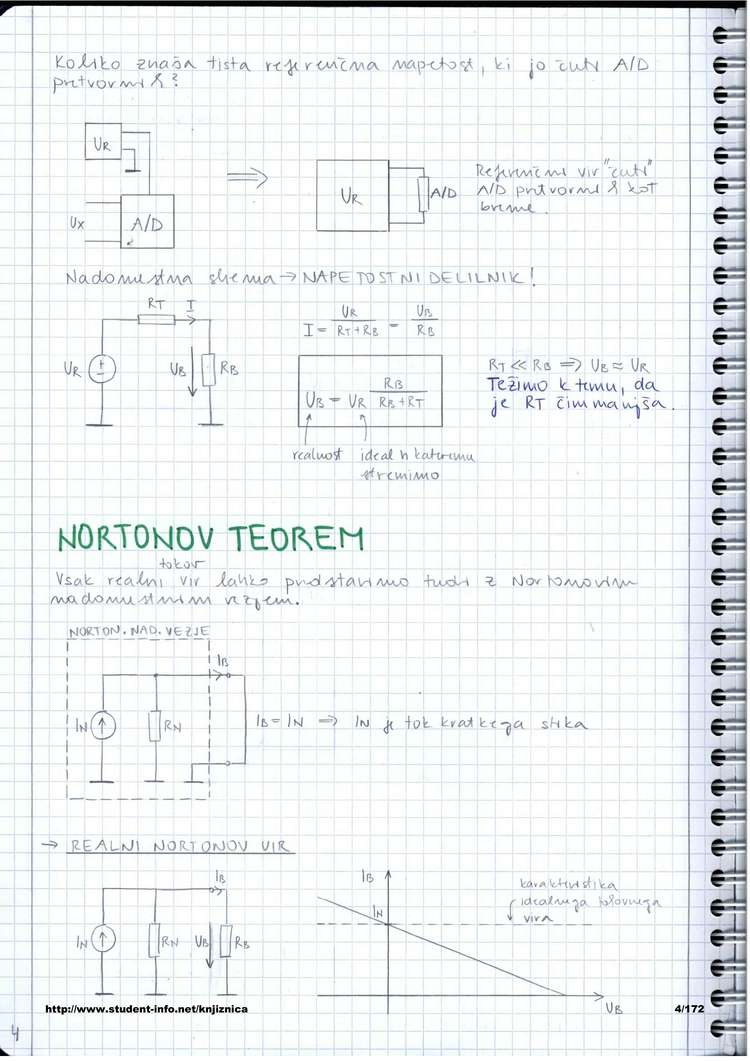 Koliko znaša tista referenčna napetost, ki jo čuti A/D
pretvornik?
UR
UX
A/D
UR
A/D
Referenčni vir "čuti"
A/D pretvornik kot
breme.
Nadomestna shema → NAPETOSTNI DELILNIK!
RT
I
UR
UB
RB
I = UR / (RT + RB) = UB / RB
UB = UR RB / (RB + RT)
RT ≪ RB ⇒ UB ≈ UR
Težimo k temu, da
je RT čim manjša.
realnost
ideal h kateremu
stremimo
NORTONOV TEOREM
tokov
Vsak realni vir lahko predstavimo tudi z Nortonovim
nadomestnim vezjem.
NORTON. NAD. VEZJE
IB
IN
RN
IB = IN ⇒ IN je tok kratkega stika
→ REALNI NORTONOV VIR
IB
IN
RN
UB
RB
IB
IN
karakteristika
idealnega tokovnega
vira
UB
http://www.student-info.net/knjiznica
4/172
4